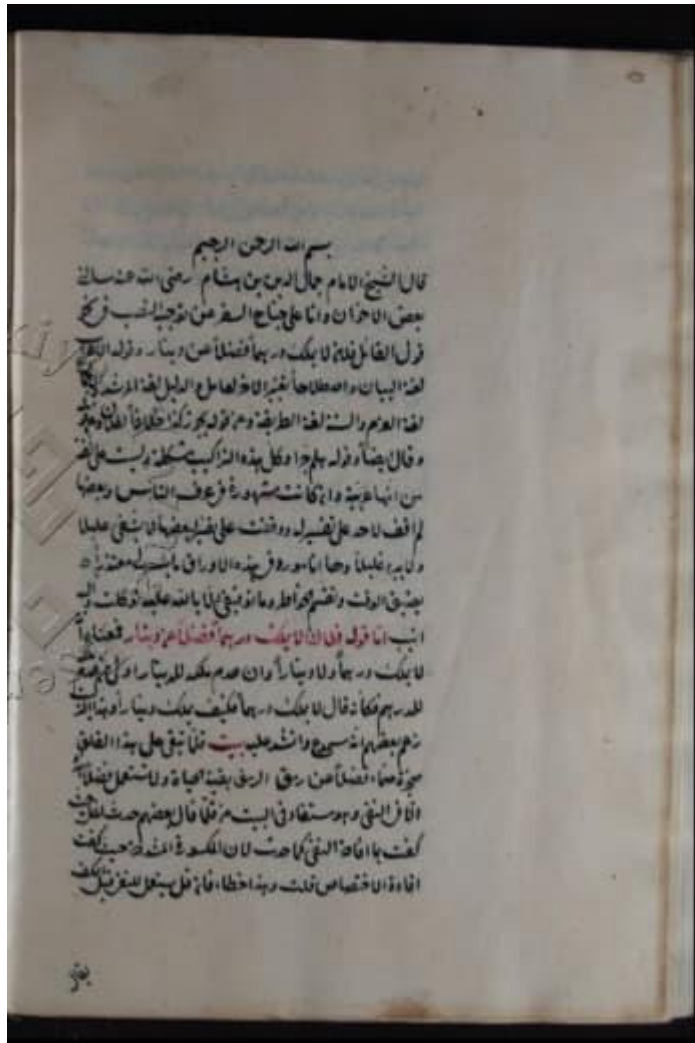 بسم الله الرحمن الرحيم
قال الشيخ الامام جمال الدين بن هشام رضى الله عنه سالنى
بعض الاخوان وانا على جناح السفر عن توجيه النصب فى نحو
قول القائل فلان لا يملك درهما فضلاً عن دينار وقوله الاعراب
لغة البيان واصطلاحاً تغير الاخر لعامل والدليل لغة المرشد
لغة العزم والسنة لغة الطريقة وعن قوله يجوز كذا خلافاً لفلان
وقال ايضاً وقوله هلم جرا وكل هذه التراكيب مشكلة ولست على ثقة
من انها عربية وان كانت مشهورة فى عرف الناس وبعضها
لم اقف لاحد على تفسيره ووقفت على تفسير لبعضها لا يشفى عليلا
ولا يبرد غليلاً وها انا مورد فى هذه الاوراق ما تيسر لى معتذراً
بضيق الوقت وتقسم الخواطر وما توفيقى الا بالله عليه توكلت واليه
انيب اما قوله فلان لا يملك درهما فضلاً عن دينار فمعناه انه
لا يملك درهماً ولا ديناراً وان عدم ملكه للدينار اولى من عدم
للدرهم فكانه قال لا يملك درهماً فكيف يملك ديناراً وهذا التركيب
زعم بعضهم انه مسموع وانشد عليه بيت قلما يبقى على هذا القلق
صخرة صماء فضلاً عن رمق الرمق بقية الحياة ولا تستعمل فضلاً
الا فى النفى وهو مستفاد فى البيت من قلما قال بعضهم حدث لقل حين
كفت بما افادة النفى كما حدث لان المكسورة المشددة حين كفت
افادة الاختصاص قلت وهذا خطاء فان قل يستعمل للنفى قبل الكف